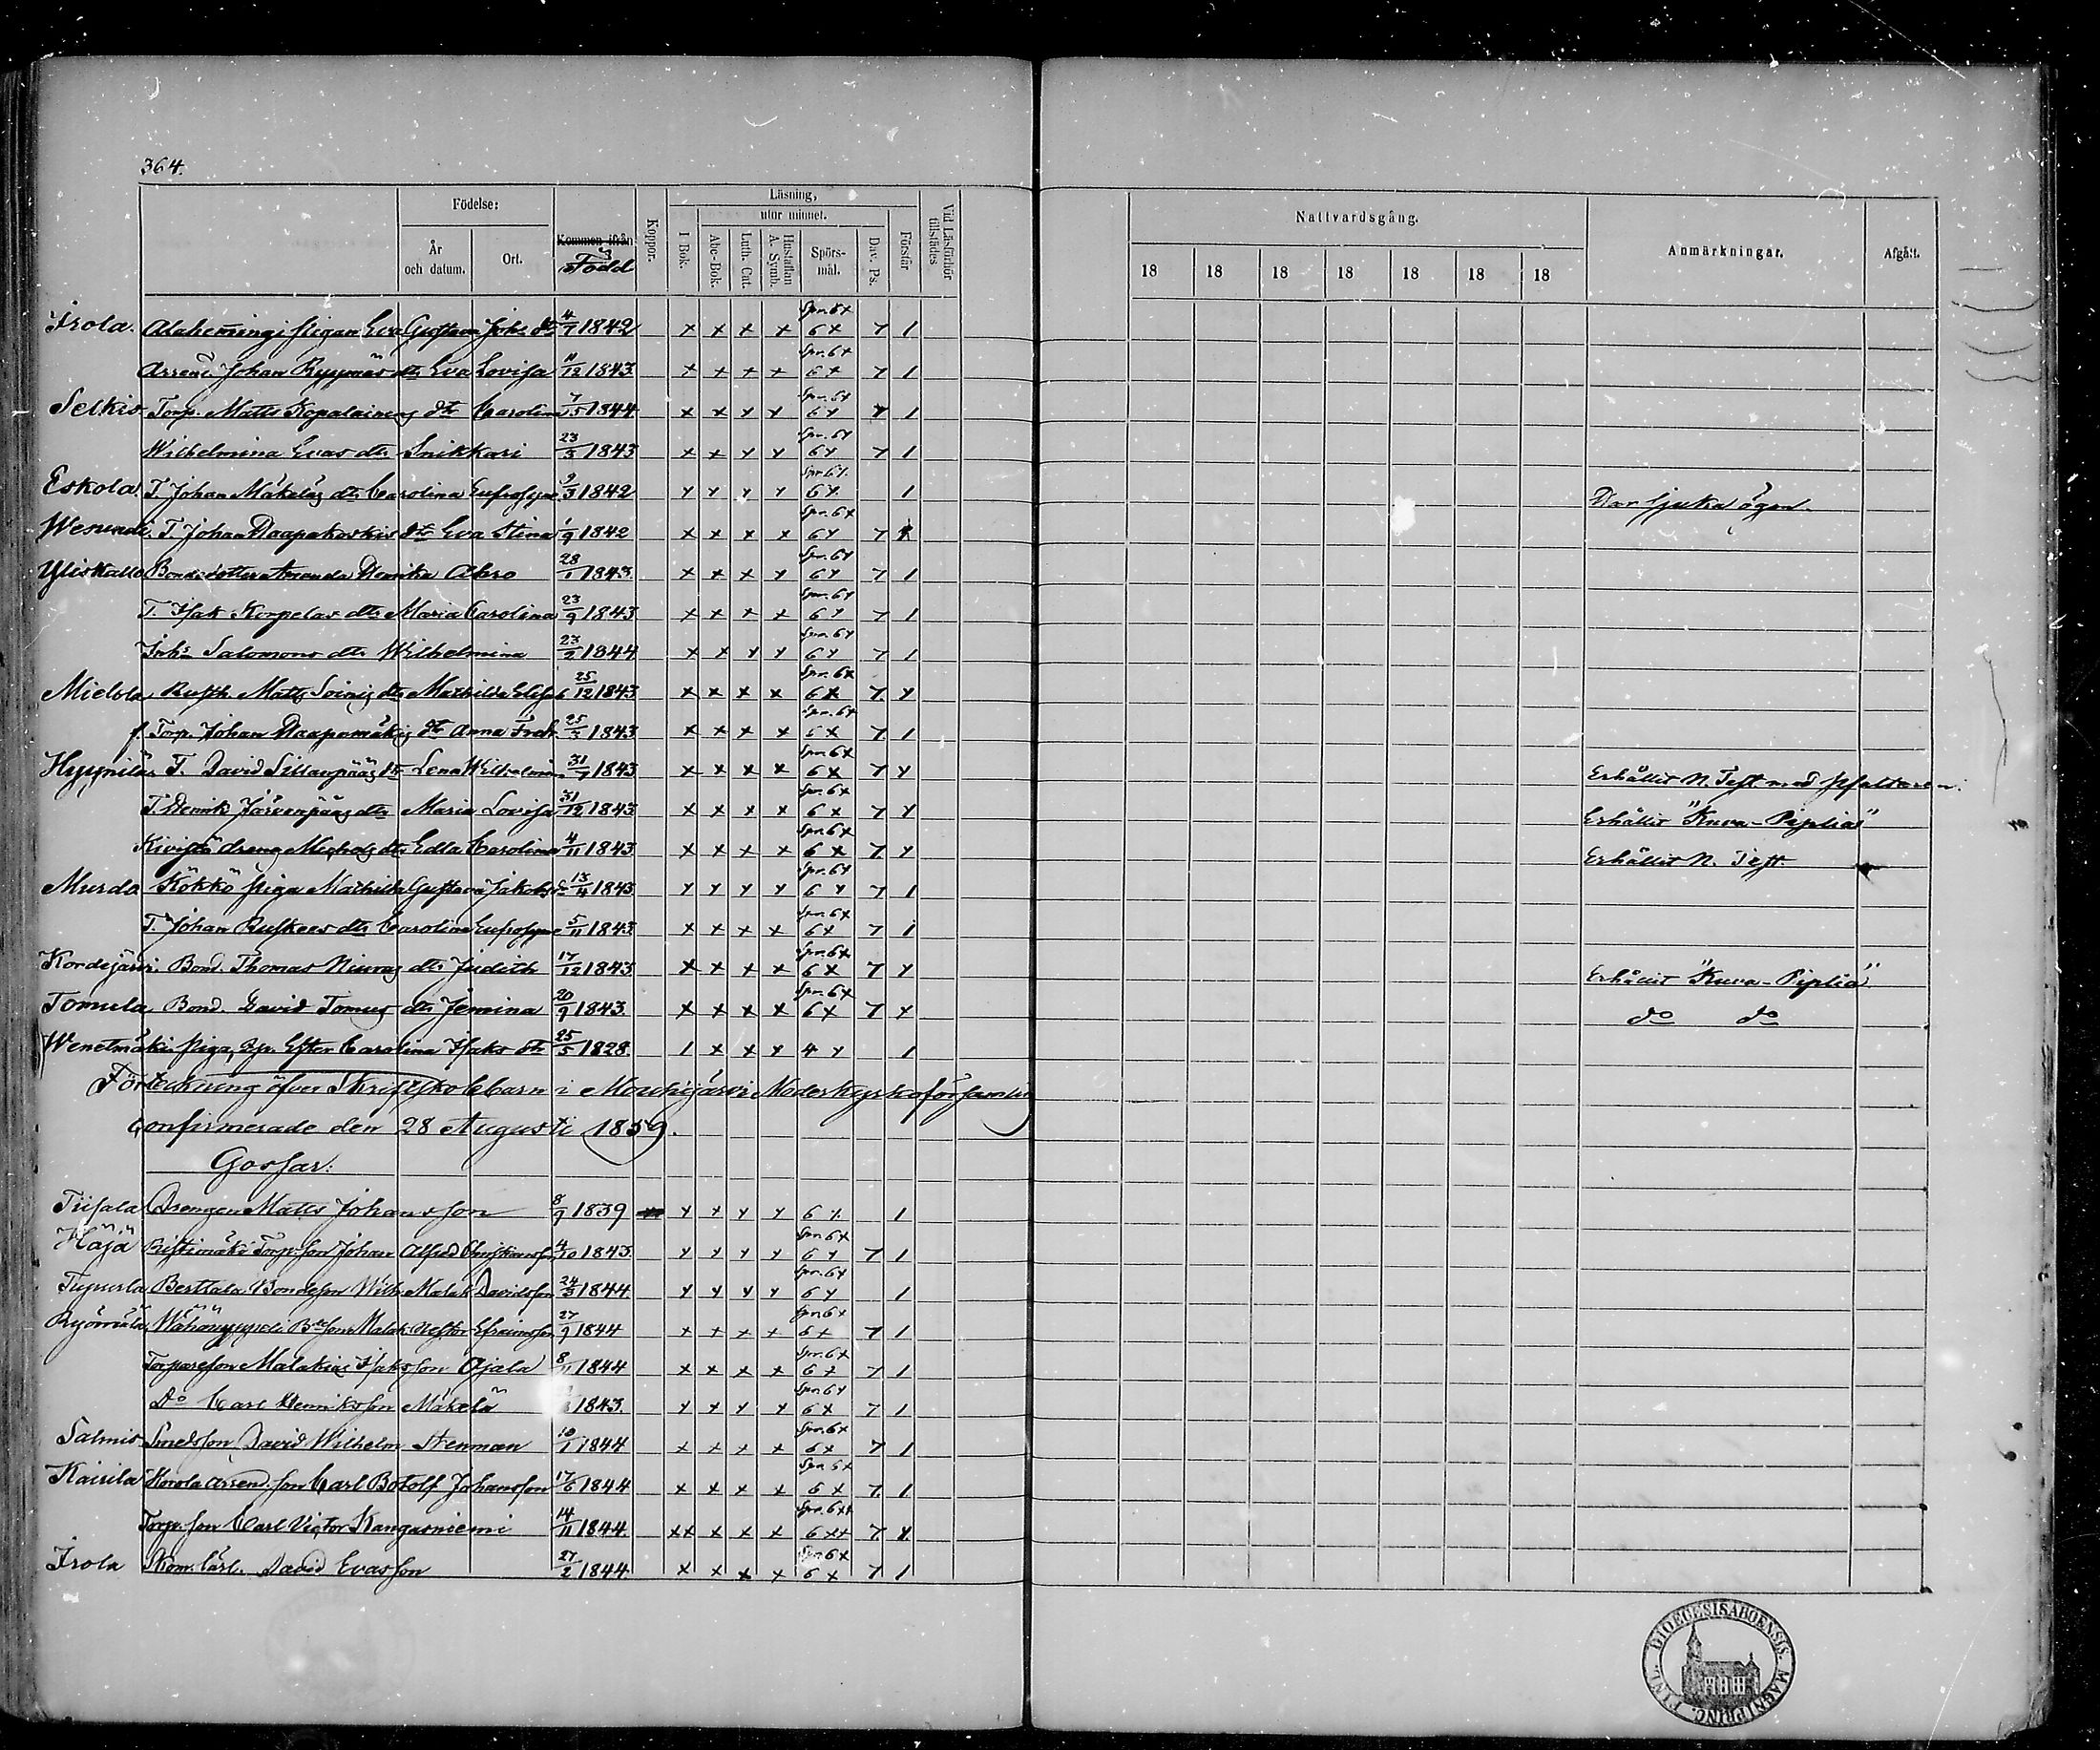 364.
Födelse: Kommen ifrån Koppor. Läsning, utur minnet. Vid Läsförhör tillstädes Nattvardsgång. Anmärkningar. Afgått.
År och datum. Ort. Född I Bok. Abc-Bok. Luth. Cat. Hustaflan A. Symb. Spörsmål. Dav. Ps. Förstår 18 18 18 18 18 18 18
Irola. pigan Eva Gustava Johs dtr 4/7 1842 x x x x Spr. 6x 6x 7 1
Arrend. Johan Ryymäs dtr Eva Lovisa 11/12 1843 x x x x Spr. 6x 6x 7 1
Selkis Torp. Matts dtr Carolina 7/5 1844 x x y y Spr. 6y 6y 7 1
Wilhelmina Evas dtr Snikkari 23/3 1843 x x y y Spr. 6y 6y 7 1
Eskola. T. Johan Mäkeläs dtr Carolina Eufrosyne 9/3 1842 y y y y Spr. 6y. 6y. 1 Har sjuka ögon.
T. Johan Haapakoskis dtr Eva Stina 1/9 1842 x x x x Spr. 6x 6y 7
Yliskallo Bondedotter Amanda Henrika Akro 28/1 1843 x x x y Spr. 6y 6y 7 1
T. Isak Korpelas dtr Maria Carolina 23/9 1843 x x x x Spr. 6y 6y 7 1
Inhs Salomons dtr Wilhelmina 23/2 1844 x x y y Spr. 6y 6y 7 1
Mielola Matts Soinis dtr Mathilda Elisab 25/12 1843 x x x x Spr. 6x 6x 7. y
f. Torp. Johan Haapamäkis dtr Anna Fredr. 25/3 1843 x x x x Spr. 6x 6x 7. 1
Hyynilä T. David Sillanpääs dtr Lena Wilhelmin 31/7 1843 x x x x Spr. 6x 6x 7 y Erhållit N. Test. med psaltaren.
T. Henrik Järvenpääs dtr Maria Lovisa 31/12 1843 x x x x Spr. 6x 6x 7 y Erhållit "Kuva-Piplia"
Kivistö dreng dtr Edla Carolina 4/11 1843 x x x x Spr. 6x 6x 7 y Erhållit N. Test.
Murda Kökkö piga Mathilda Gustava Jakobsdr 13/4 1843 y y y y Spr. 6y 6 y 7 1
T. Johan dtr Carolina Eufrosyne 5/11 1843. x x x x Spr. 6x 6x 7 1
Kordejärvi. Bond. Thomas dtr Judith 17/12 1843 x x x x Spr. 6x 6x 7 y Erhållit "Kuva-Piplia"
Tomula Bond. David Tomus dtr Jemina 20/9 1843. x x x x Spr. 6x 6x 7 y do do
Wenetmäki Piga, Ester Carolina Isaks dtr 25/5 1828. 1 x x y 4 y 1
Förteckning öfver Skriftskolebarn i Mouhijärvi Moderkyrkoförsamling
Confirmerade den 28 Augusti 1859.
Gossar:
Tiisala Drengen Matts Johansson 8/9 1839 y x y y 6 y. 1
Häjä Ristimäki Torp. son Johan Alfred Christiansson 4/10 1843. y y y y Spr. 6x 6 y 7 1
Tupurla Berttala Bondeson Wilh. Malak. Davidsson 24/3 1844 y y y y Spr. 6x 6y 1
Ryömälä Malak. Nestor Efraimsson 27/9 1844 x x x x Spr. 6x 6x 7 1
Torpareson Malakias Isaksson Ojala 8/11 1844 x x x x Spr. 6x 6x 7 1
do Carl Henriksson Mäkelä 1843. y y y y Spr. 6y 6x 7 1
Salmis Smedsson David Wilhelm Stenman 10/1 1844 x x x x Spr. 6x 6x 7 1
Kairila Horola arrend. son Carl Botolf Johansson 17/6 1844 x x x x Spr. 6x 6x 7. 1
Torp. son Carl Victor Kangasniemi 14/11 1844. xx x x x Spr. 6xx 6xx 7 y.
Irola David Evasson 27/2 1844. x x x x Spr. 6x 6x 7 1
DIOECESIS ABOENSIS MAGNI PRINC. FINL.